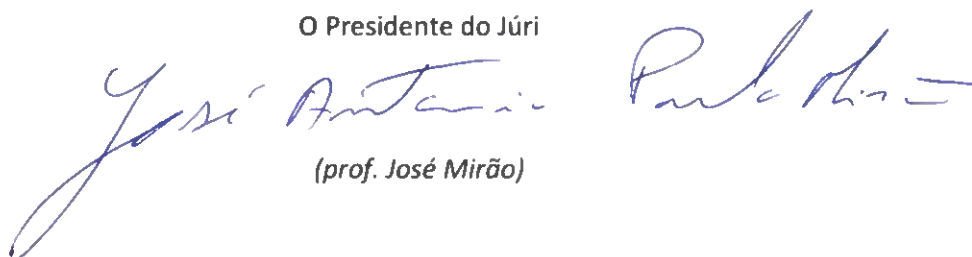 O Presidente do Júri
José António Paulo Mirão
(prof. José Mirão)